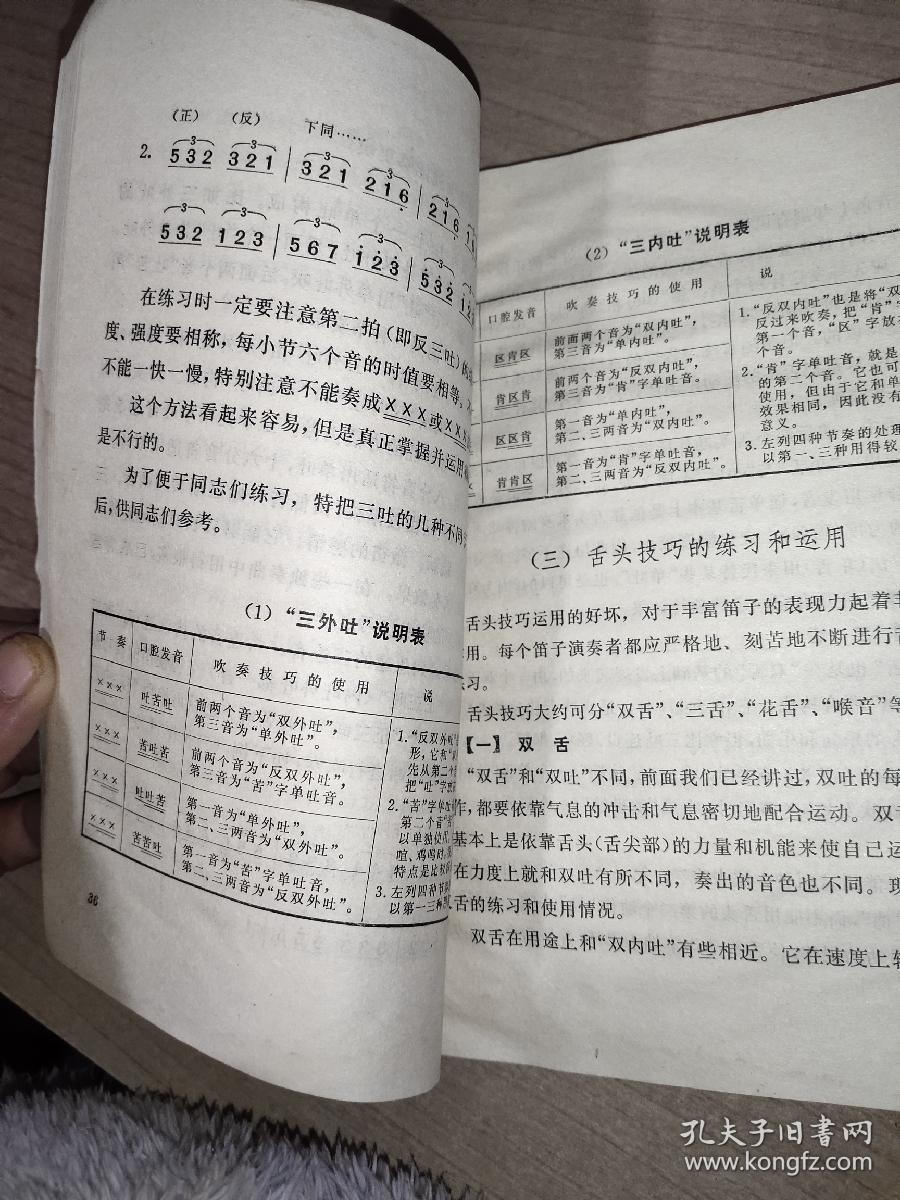 （正） （反） 下同……
2. 532 321 | 321 216 | 216
532 123 | 567 123 | 532
在练习时一定要注意第二拍（即反三吐）
度、强度要相称，每小节六个音的时值要相等。
不能一快一慢，特别注意不能奏成×××或×××
这个方法看起来容易，但是真正掌握并运用
是不行的。
为了便于同志们练习，特把三吐的几种不同
后，供同志们参考。
（1）“三外吐”说明表
节奏 口腔发音 吹奏技巧的使用 说
××× 吐苦吐 前两个音为“双外吐”，
第三音为“单外吐”。
××× 苦吐苦 前两个音为“反双外吐”，
第三音为“苦”字单吐音。
××× 吐吐苦 第一音为“单外吐”，
第二、三两音为“双外吐”。
××× 苦苦吐 第一音为“苦”字单吐音，
第二、三两音为“反双外吐”。
1.“反双外吐”
形，它和
先从第二个
把“吐”字
2.“苦”字单
第二个音“
以单独使
喧、鸡鸣
特点是比较
3.左列四种节
以第一三种
36
（2）“三内吐”说明表
口腔发音 吹奏技巧的使用 说
区肯区 前面两个音为“双内吐”，
第三音为“单内吐”。
肯区肯 前两个音为“反双内吐”，
第三音为“肯”字单吐音。
区区肯 第一音为“单内吐”，
第二、三两音为“双内吐”。
肯肯区 第一音为“肯”字单吐音，
第二、三两音为“反双内吐”。
1.“反双内吐”也是将“双
反过来吹奏，把“肯”
第一个音，“区”字放
个音。
2.“肯”字单吐音，就是
的第二个音。它也可
使用，但由于它和单
效果相同，因此没有
意义。
3.左列四种节奏的处理
以第一、三种用得较
（三）舌头技巧的练习和运用
舌头技巧运用的好坏，对于丰富笛子的表现力起着
用。每个笛子演奏者都应严格地、刻苦地不断进行
练习。
舌头技巧大约可分“双舌”、“三舌”、“花舌”、“喉音”等
【一】双舌
“双舌”和“双吐”不同，前面我们已经讲过，双吐的每
作，都要依靠气息的冲击和气息密切地配合运动。双
基本上是依靠舌头（舌尖部）的力量和机能来使自己运
在力度上就和双吐有所不同，奏出的音色也不同。现
舌的练习和使用情况。
双舌在用途上和“双内吐”有些相近。它在速度上较
孔夫子旧书网
www.kongfz.com